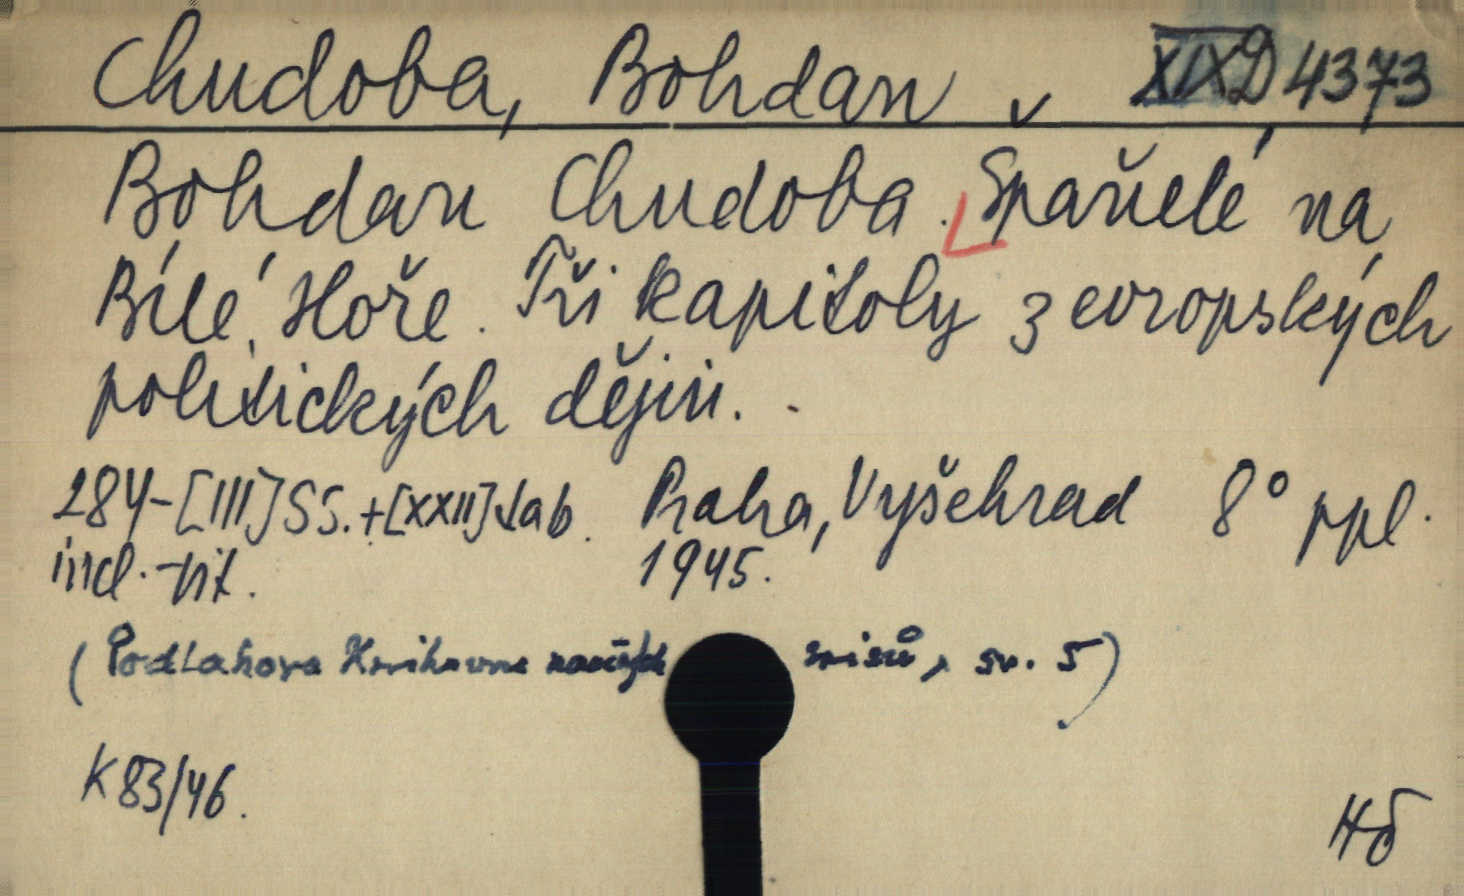 Chudoba, Bohdan v XIX D 4373
Bohdan Chudoba. Španělé na
Bílé Hoře. Tři kapitoly z evropských
politických dějin.
284-[III] SS.+[XXII] tab. Praha, Vyšehrad 8° ppl.
incl. tit. 1945.
(Podlahova Knihovna naučných spisů, sv. 5)
K 83/46.